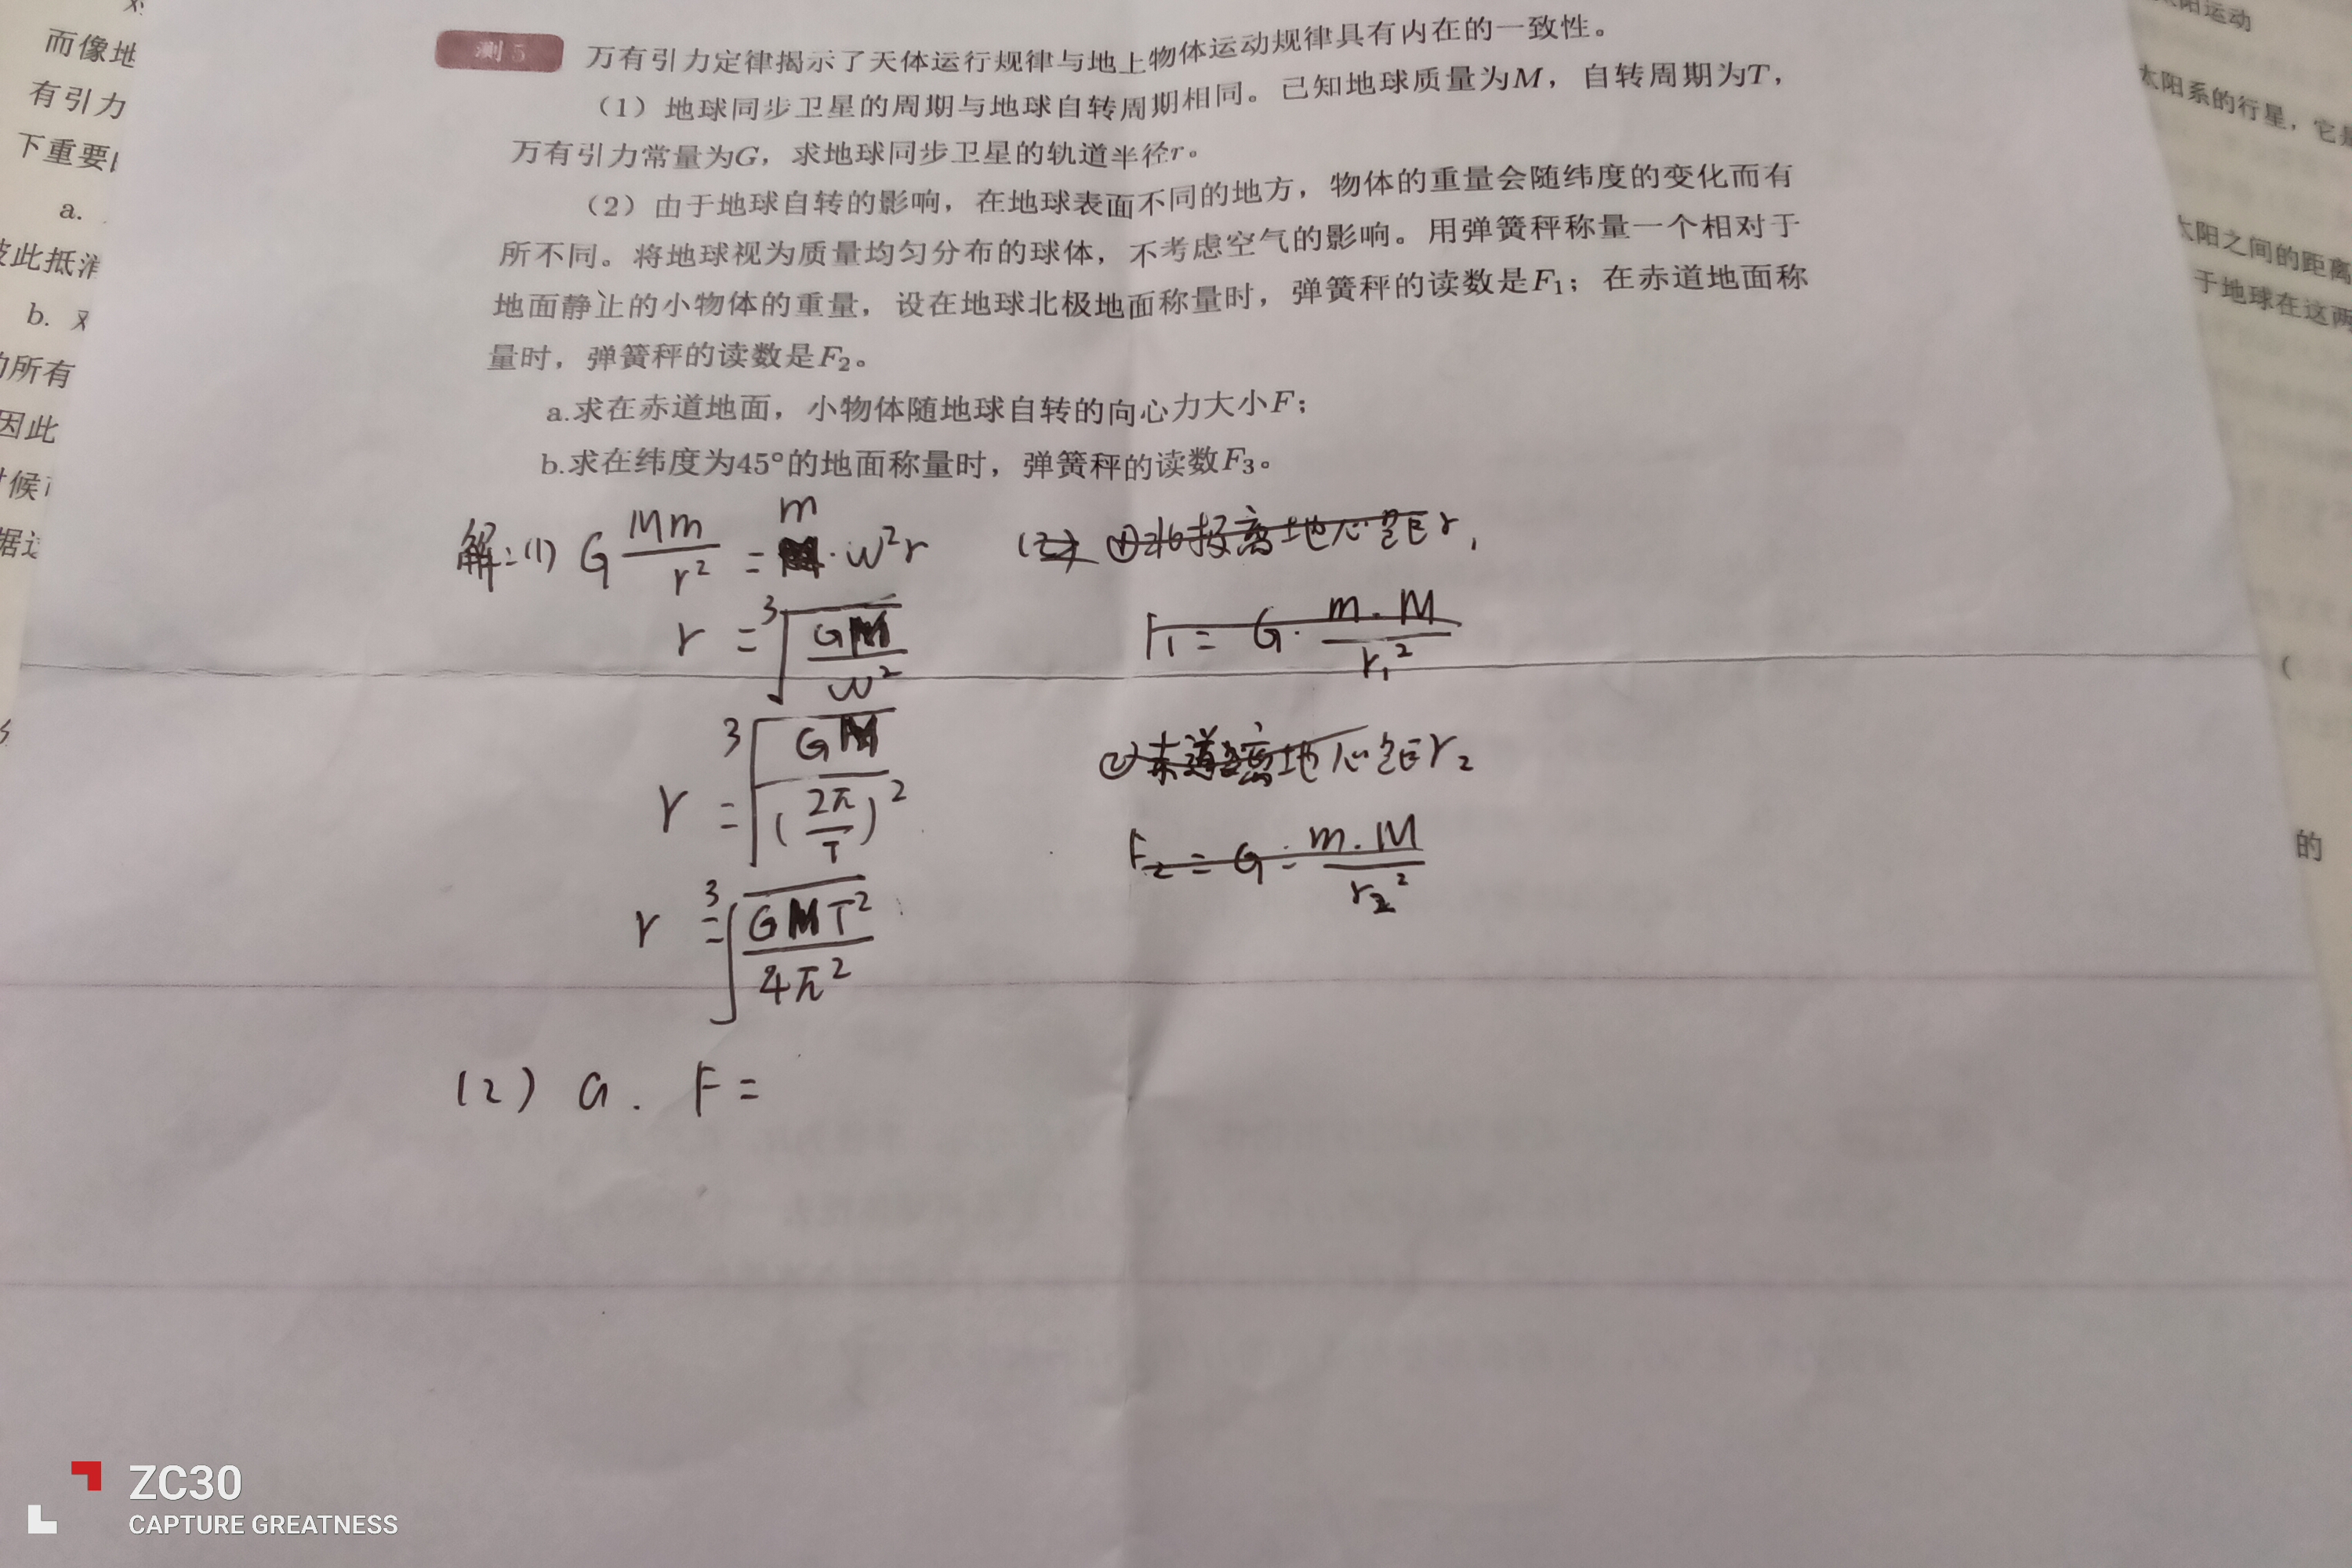 测5 万有引力定律揭示了天体运行规律与地上物体运动规律具有内在的一致性。
（1）地球同步卫星的周期与地球自转周期相同。已知地球质量为M，自转周期为T，
万有引力常量为G，求地球同步卫星的轨道半径r。
（2）由于地球自转的影响，在地球表面不同的地方，物体的重量会随纬度的变化而有
所不同。将地球视为质量均匀分布的球体，不考虑空气的影响。用弹簧秤称量一个相对于
地面静止的小物体的重量，设在地球北极地面称量时，弹簧秤的读数是F₁；在赤道地面称
量时，弹簧秤的读数是F₂。
a.求在赤道地面，小物体随地球自转的向心力大小F；
b.求在纬度为45°的地面称量时，弹簧秤的读数F₃。
解：(1) G Mm/r² = m·ω²r
r = ³√(GM/ω²)
r = ³√(GM/(2π/T)²)
r = ³√(GMT²/4π²)
(2) a. F =
(2) ①北极离地心距r₁
F₁ = G·m.M/r₁²
②赤道离地心距r₂
F₂ = G·m.M/r₂²
而像地
有引力
下重要
a.
彼此抵消
b. 对
的所有
因此
时候
据这
太阳运动
太阳系的行星，它是
太阳之间的距离
于地球在这两
(
的
ZC30
CAPTURE GREATNESS